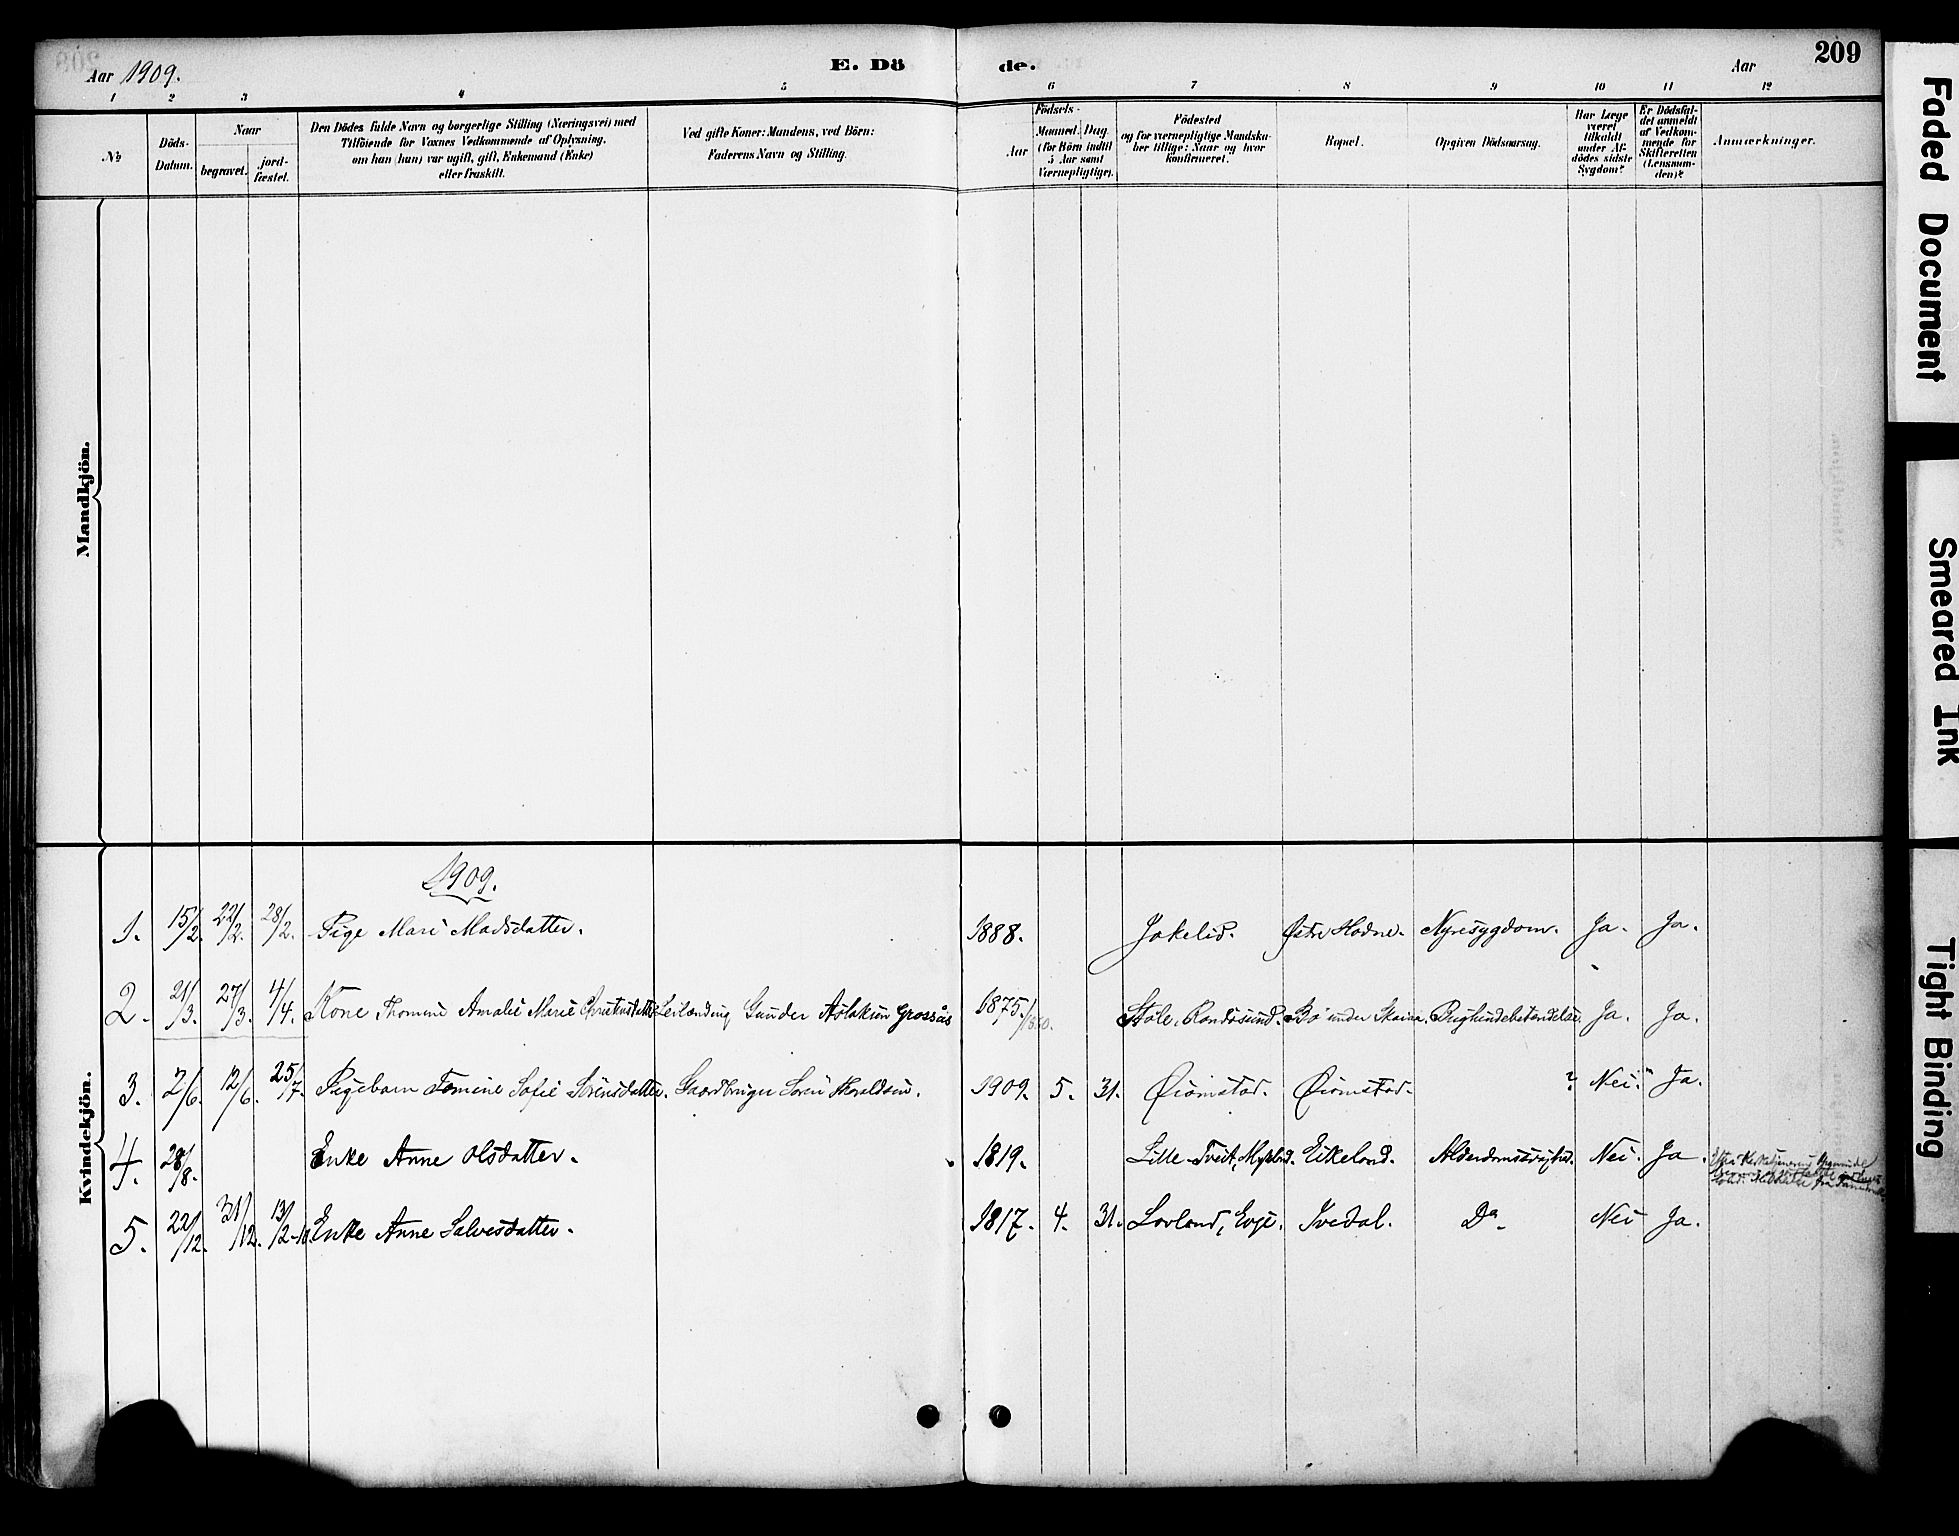 Aar 1909.
E. Dö de.
Aar
209
1 2 3 4 5 6 7 8 9 10 11 12
№
Döds-Datum.
Naar
begravet.
jord-fæstet.
Den Dödes fulde Navn og borgerlige Stilling (Næringsvei) med
Tilföiende for Voxnes Vedkommende af Oplysning,
om han (hun) var ugift, gift, Enkemand (Enke)
eller fraskilt.
Ved gifte Koner: Mandens, ved Börn:
Faderens Navn og Stilling.
Födsels-
Aar
Maaned. Dag
(for Börn indtil
5 Aar samt
Værnepligtige).
Födested
og for værnepligtige Mandska-
ber tillige: Naar og hvor
konfirmeret.
Bopæl.
Opgiven Dödsaarsag.
Har Læge
været
tilkaldt
under Af-
dödes sidste
Sygdom?
Er Dödsfal-
det anmeldt
af Vedkom-
mende for
Skifteretten
(Lensman-
den)?
Anmærkninger.
Mandkjön.
Kvindekjön.
1909.
1. 15/2. 22/2. 28/2. Pige Mari Madsdatter. 1888. Jakelid. Østre Hodne. Nyresygdom. Ja. Ja.
2. 21/3. 27/3. 4/4. Kone Thomine Amalie Marie Leilænding Gunder Aslaksen Grossås 1875. Randøsund. Bø under Ja. Ja.
3. 2/6. 12/6. 25/7. Pigebarn Tomine Sofie Sörensdatter. Gaardbruger Sören Haraldsen. 1909. 5. 31. Øiomstad. Øiomstad. ? Nei. Ja.
4. 28/8. Enke Anne Olsdatter. 1819. Lille-Tveit, Eikeland. Alderdomssvaghed. Nei. Ja.
5. 22/12. 31/12. 13/2-10 Enke Anne Salvesdatter. 1817. 4. 31. Lovland, Evje. Ivedal. Do. Nei Ja.
Faded Document
Smeared Ink
Tight Binding